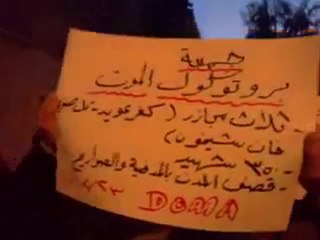 جمعة
بروتوكول الموت
- ثلاث مجازر (كفرعويد -
خان شيخون)
- ٣٥٠ شهيد
- قصف المدن بالمدفعية والصواريخ
DOMA